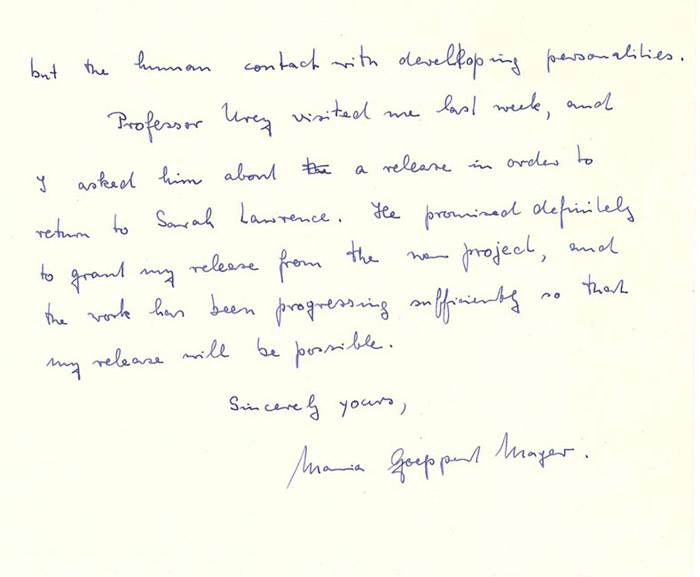 but the human contact with developing personalities.
Professor Urey visited me last week, and
I asked him about the a release in order to
return to Sarah Lawrence. He promised definitely
to grant my release from the project, and
the work has been progressing sufficiently so that
my release will be possible.
Sincerely yours,
Maria Goeppert Mayer.